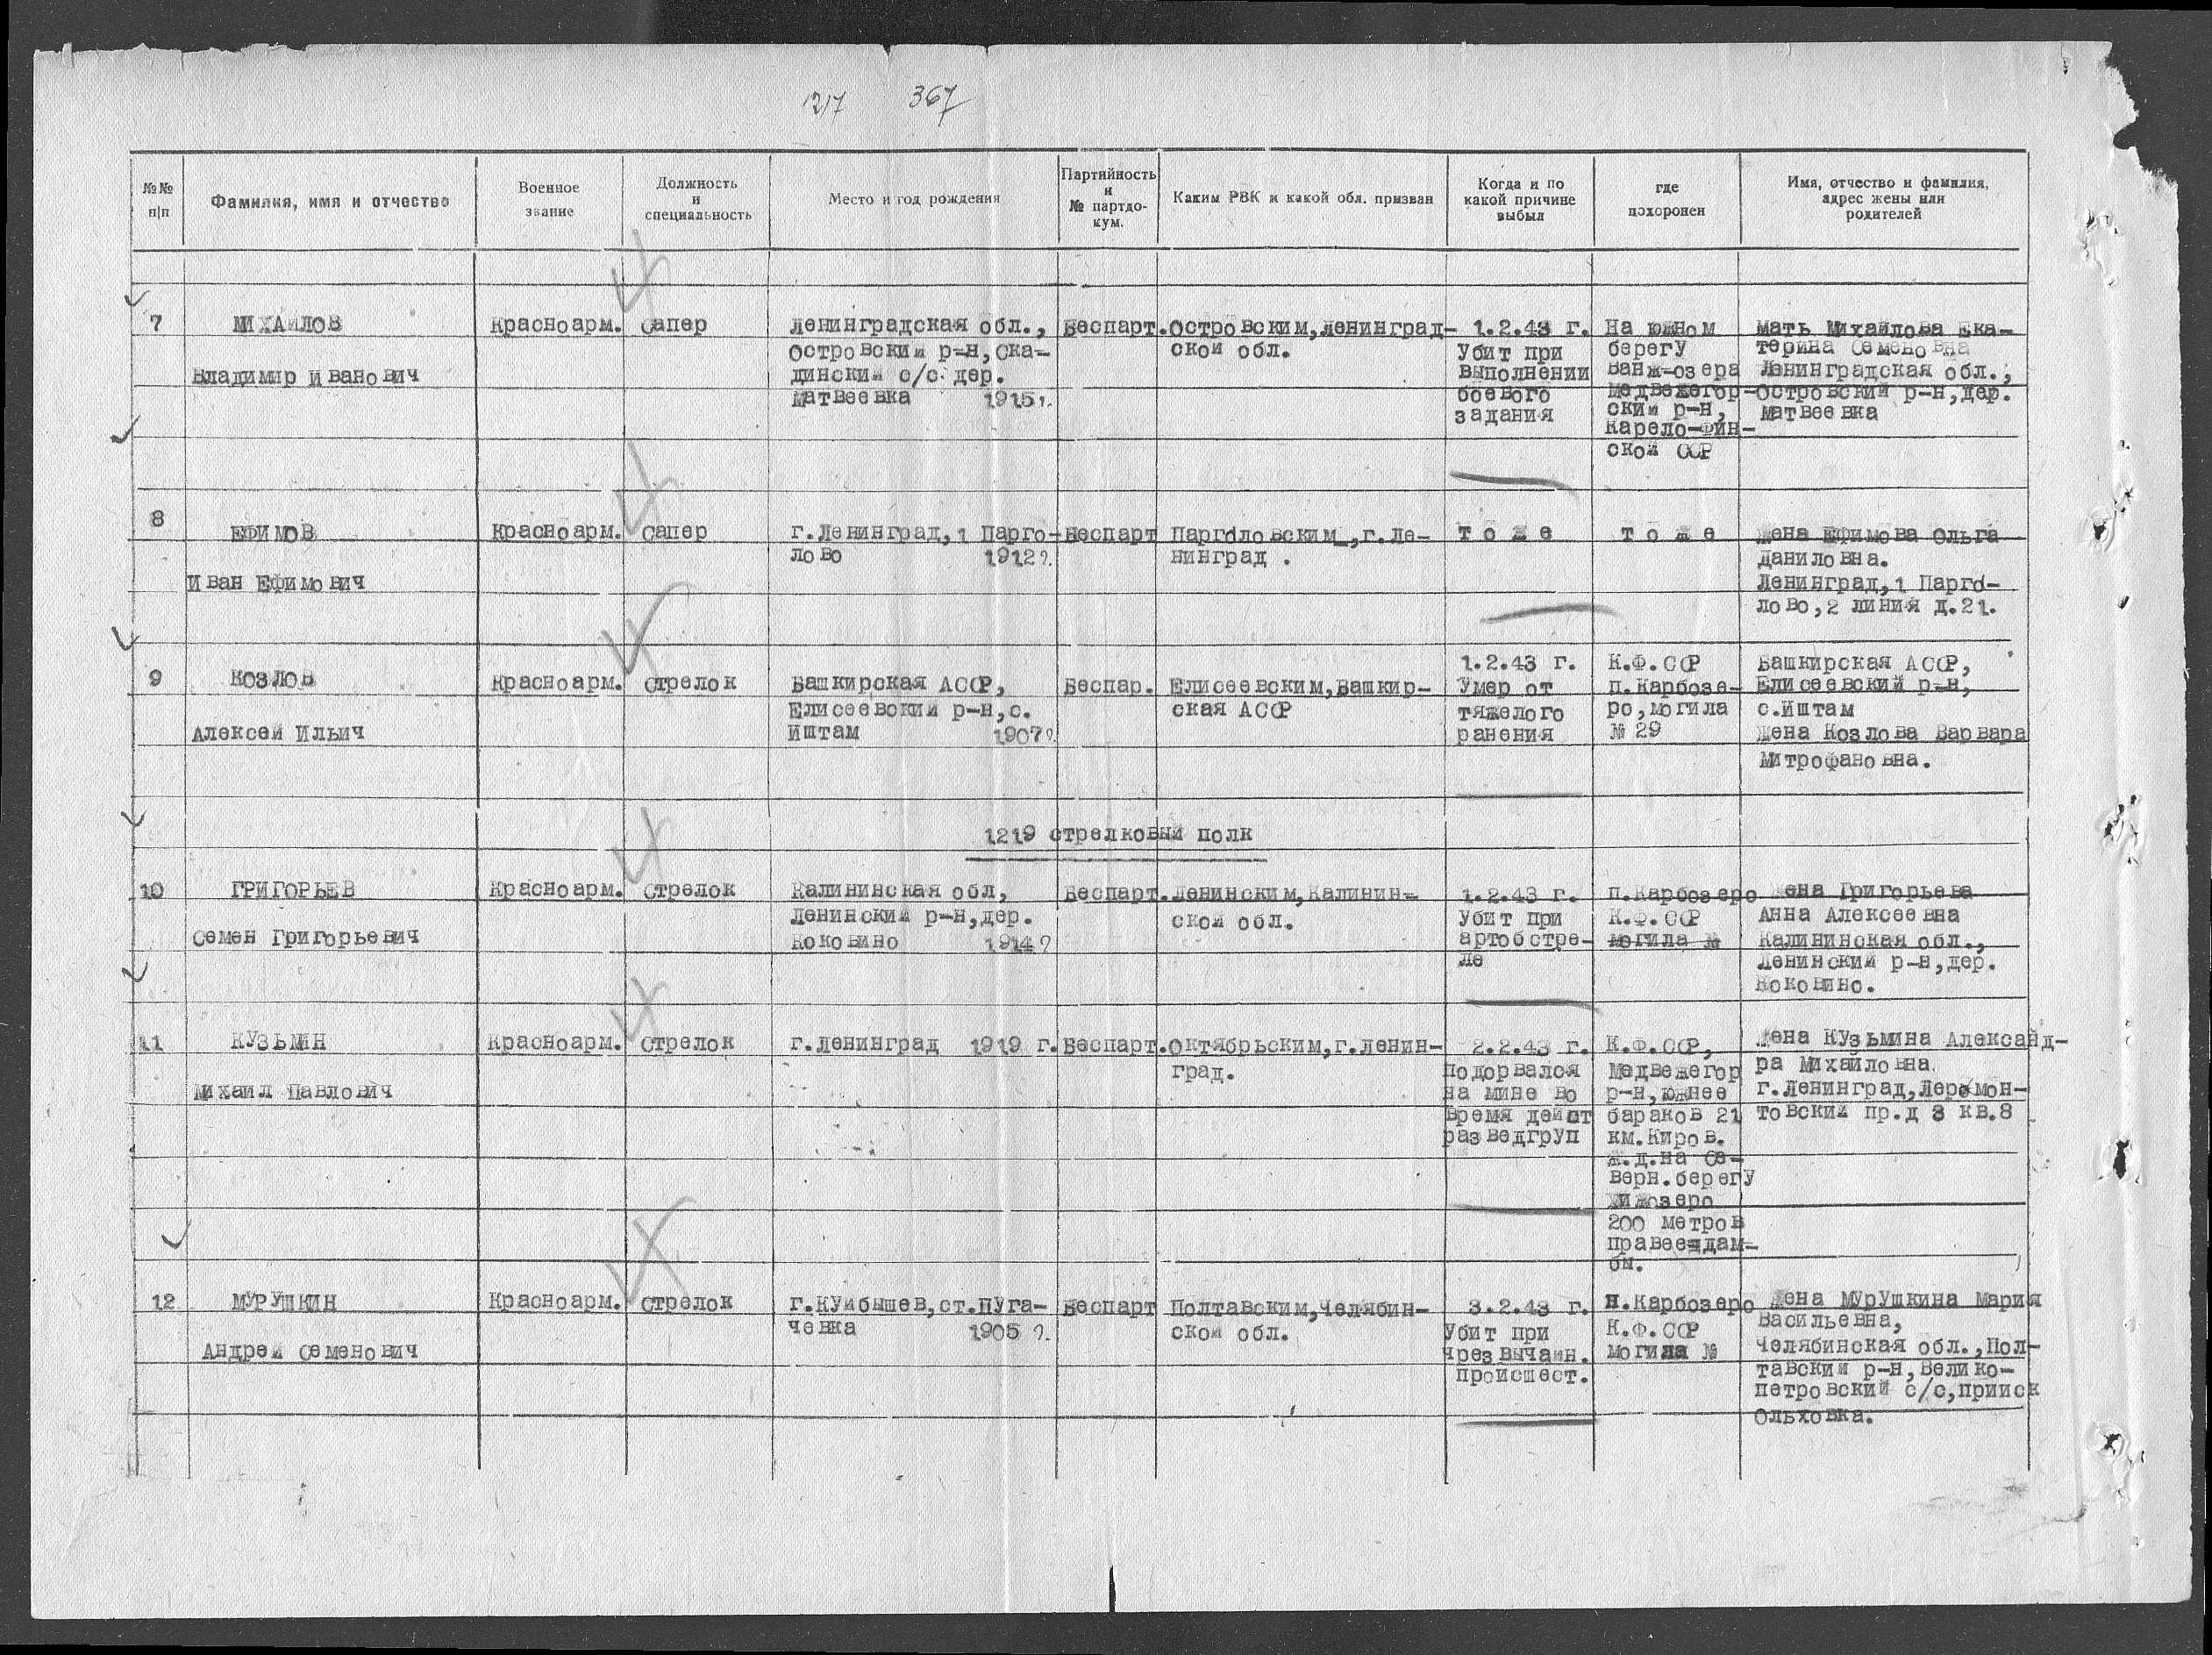 1217 367
№№ п/п
Фамилия, имя и отчество
Военное звание
Должность и специальность
Место и год рождения
Партийность и № партдокум.
Каким РВК и какой обл. призван
Когда и по какой причине выбыл
где похоронен
Имя, отчество и фамилия, адрес жены или родителей
7
МИХАЙЛОВ
Владимир Иванович
Красноарм.
Сапер
Ленинградская обл.,
Островский р-н, Ска-
динский с/с. дер.
Матвеевка 1915г.
Беспарт.
Островским, Ленинград-
ской обл.
1.2.43 г.
Убит при
выполнении
боевого
задания
На южном
берегу
Ванж-озера
Медвежегор-
ский р-н,
Карело-Фин-
ской ССР
Мать Михайлова Ека-
терина Семеновна
Ленинградская обл.,
Островский р-н, дер.
Матвеевка
8
ЕФИМОВ
Иван Ефимович
Красноарм.
Сапер
г.Ленинград, 1 Парго-
лово 1912г.
Беспарт
Парголовским, г.Ле-
нинград .
т о ж е
т о ж е
Жена Ефимова Ольга
Даниловна.
Ленинград, 1 Парго-
лово, 2 линия д.21.
9
КОЗЛОВ
Алексей Ильич
Красноарм.
Стрелок
Башкирская АССР,
Елисеевский р-н, с.
Иштам 1907г.
Беспар.
Елисеевским, Башкир-
ская АССР
1.2.43 г.
Умер от
тяжелого
ранения
К.Ф.ССР
п.Карбозе-
ро, могила
№ 29
Башкирская АССР,
Елисеевский р-н,
с.Иштам
Жена Козлова Варвара
Митрофановна.
1219 стрелковый полк
10
ГРИГОРЬЕВ
Семен Григорьевич
Красноарм.
Стрелок
Калининская обл,
Ленинский р-н, дер.
Коковино 1914г
Беспарт.
Ленинским, Калинин-
ской обл.
1.2.43 г.
Убит при
артобстре-
ле
п.Карбозеро
К.Ф.ССР
могила №
Жена Григорьева
Анна Алексеевна
Калининская обл.,
Ленинский р-н, дер.
Коковино.
11
КУЗЬМИН
Михаил Павлович
Красноарм.
Стрелок
г.Ленинград 1919 г.
Беспарт.
Октябрьским, г.Ленин-
град.
2.2.43 г.
Подорвался
на мине во
время дейст
разведгруп
К.Ф.ССР,
Медвежегор
р-н, южнее
бараков 21
км.Киров.
ж.д.на Се-
верн.берегу
Хижозеро
200 метров
правее дам-
бы.
Жена Кузьмина Александ-
ра Михайловна.
г.Ленинград, Лермон-
товский пр.д 3 кв.8
12
МУРУШКИН
Андрей Семенович
Красноарм.
Стрелок
г.Куйбышев, ст.Пуга-
чевка 1905 г.
Беспарт
Полтавским, Челябин-
ской обл.
3.2.43 г.
Убит при
чрезвычайн.
происшест.
п.Карбозеро
К.Ф.ССР
могила №
Жена Мурушкина Мария
Васильевна,
Челябинская обл., Пол-
тавский р-н, Велико-
петровский с/с, прииск
Ольховка.